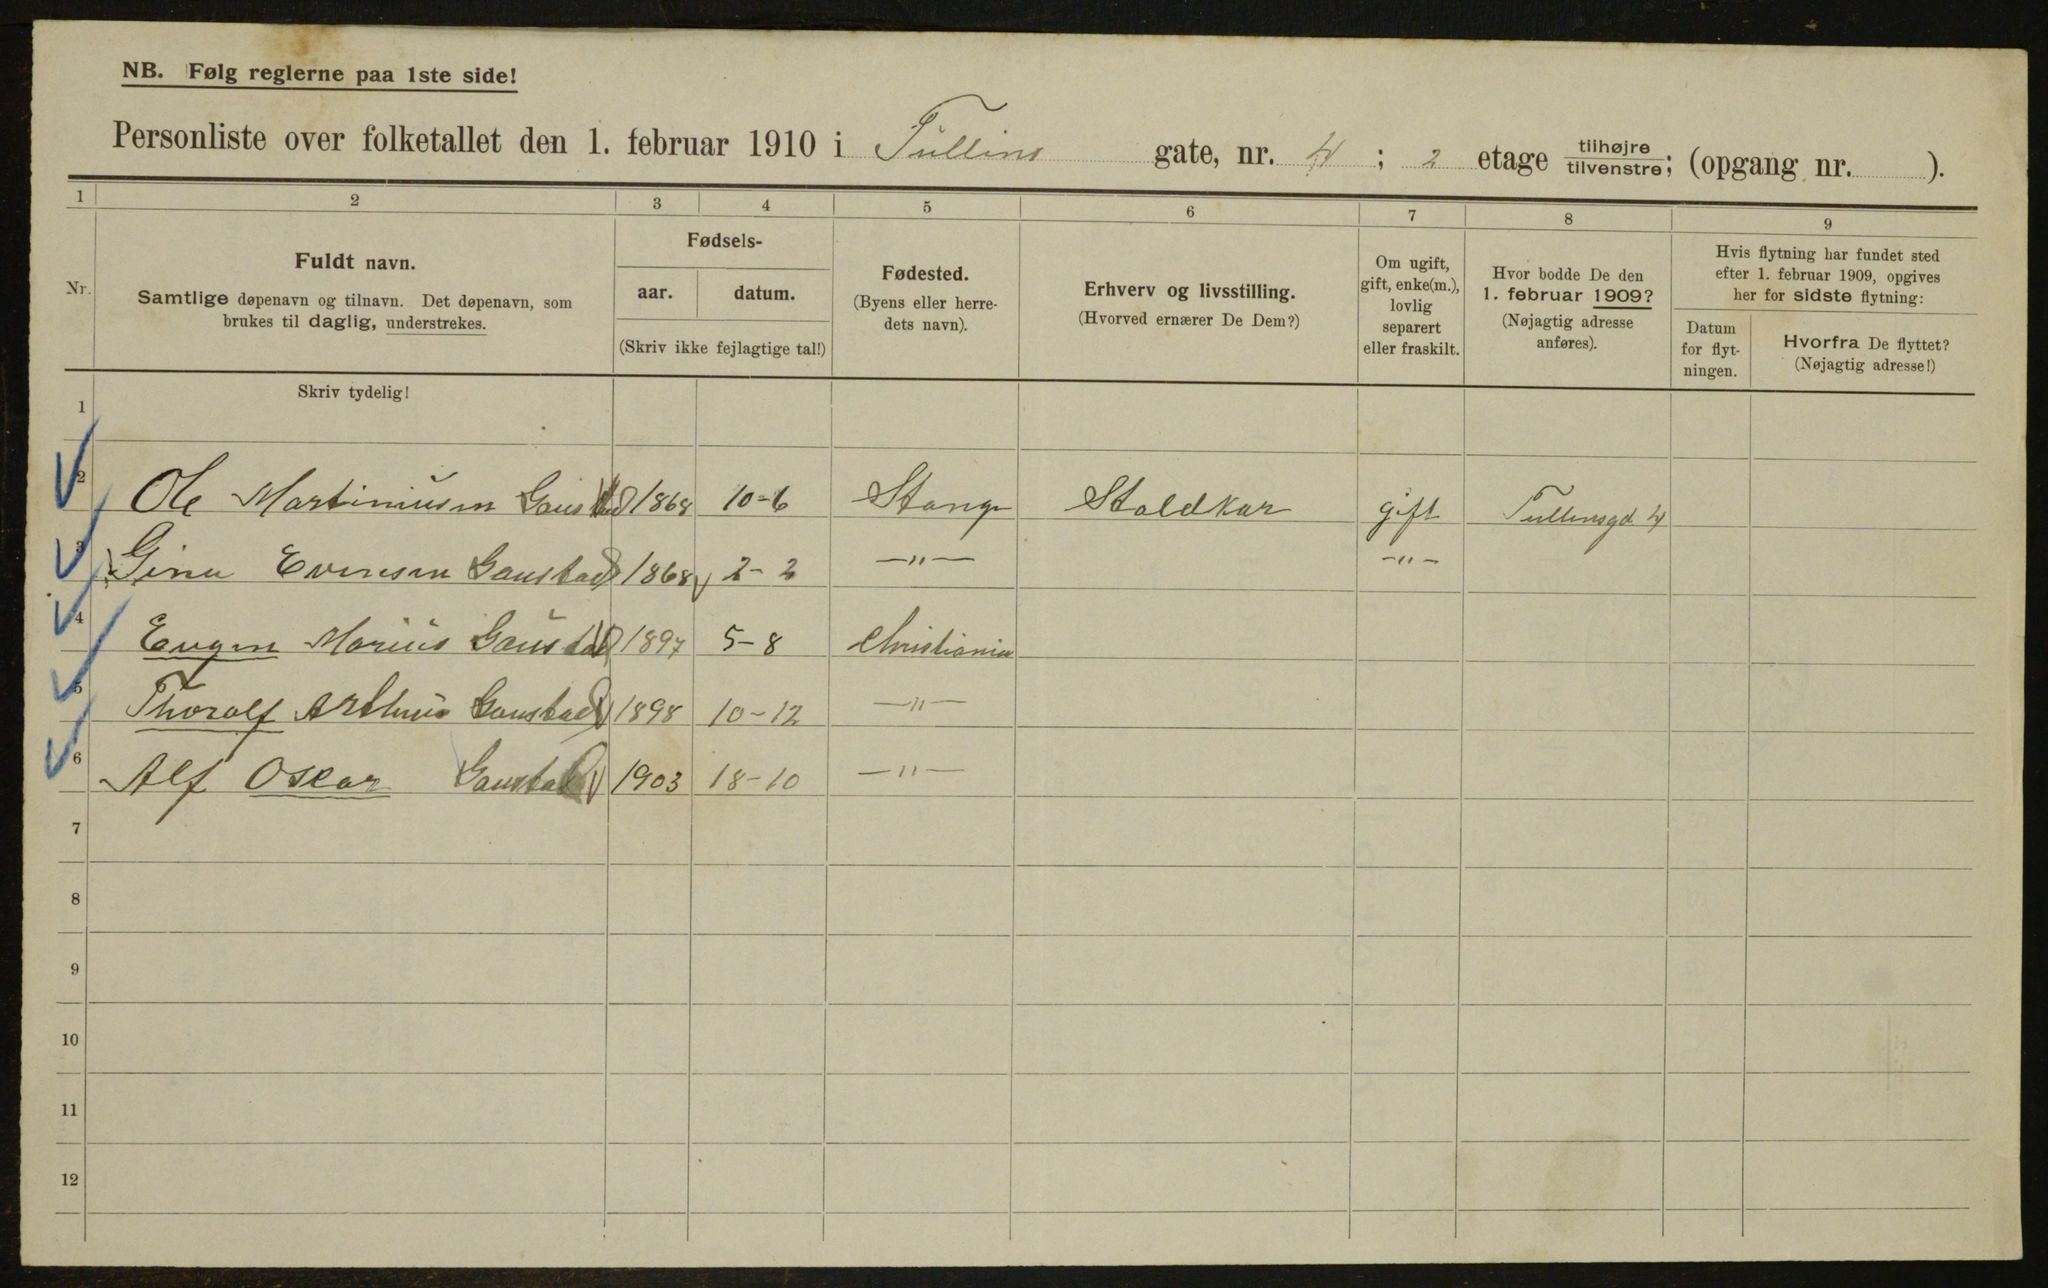 NB. Følg reglerne paa 1ste side!
Personliste over folketallet den 1. februar 1910 i Tullins gate, nr. 4; 2 etage tilhøjre/tilvenstre; (opgang nr. ).
1 2 3 4 5 6 7 8 9
Nr.
Fuldt navn.
Samtlige døpenavn og tilnavn. Det døpenavn, som
brukes til daglig, understrekes.
Fødsels-
aar. datum.
(Skriv ikke fejlagtige tal!)
Fødested.
(Byens eller herre-
dets navn).
Erhverv og livsstilling.
(Hvorved ernærer De Dem?)
Om ugift,
gift, enke(m.),
lovlig
separert
eller fraskilt.
Hvor bodde De den
1. februar 1909?
(Nøjagtig adresse
anføres).
Hvis flytning har fundet sted
efter 1. februar 1909, opgives
her for sidste flytning:
Datum
for flyt-
ningen.
Hvorfra De flyttet?
(Nøjagtig adresse!)
Skriv tydelig!
1
2 Ole Martiniusen Gaustad 1868 10-6 Stange Staldkar gift Tullinsgd. 4
3 Gina Evensen Gaustad 1868 2-2 —"— —"—
4 Eugen Marius Gaustad 1897 5-8 Christiania
5 Thoralf Arthur Gaustad 1898 10-12 —"—
6 Alf Oskar Gaustad 1903 18-10 —"—
7
8
9
10
11
12